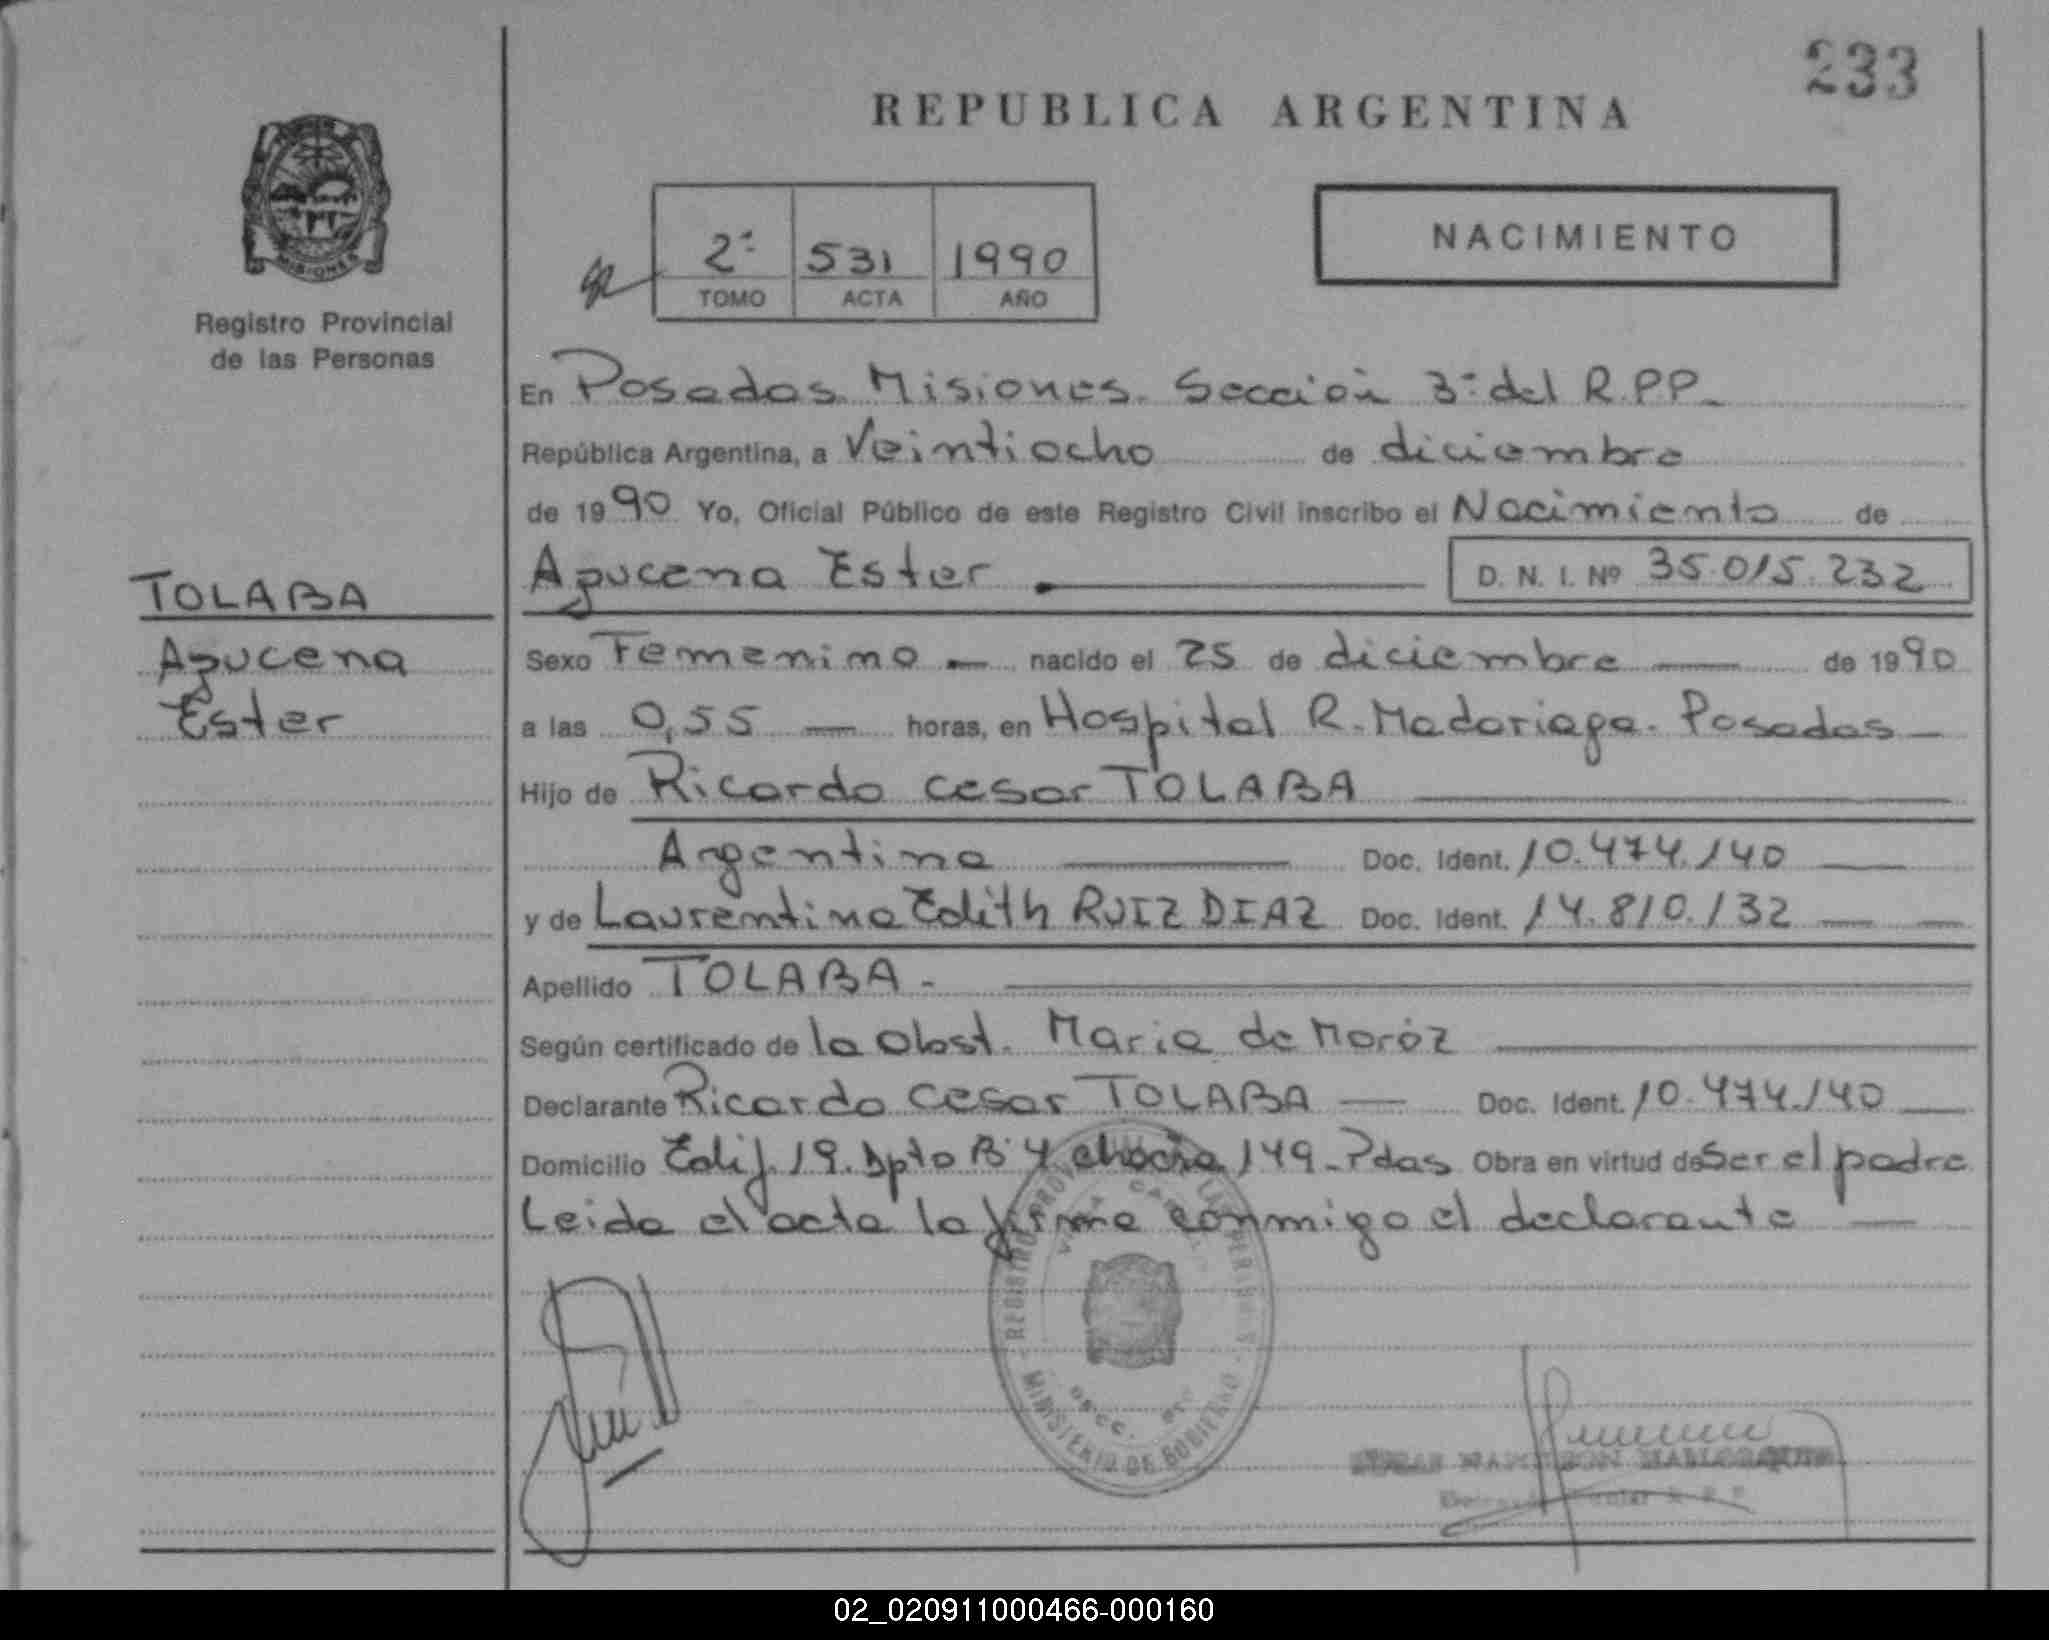 233
REPUBLICA ARGENTINA
MISIONES
Registro Provincial
de las Personas
2ª 531 1990
TOMO ACTA AÑO
NACIMIENTO
En Posadas. Misiones. Sección 3ª del R.P.P.
República Argentina, a Veintiocho de diciembre
de 1990 Yo, Oficial Público de este Registro Civil inscribo el Nacimiento de
Azucena Ester D. N. I. Nº 35.015.232
TOLABA
Azucena
Ester
Sexo Femenino nacido el 25 de diciembre de 1990
a las 0,55 horas, en Hospital R. Madariaga. Posadas
Hijo de Ricardo Cesar TOLABA
Argentina Doc. Ident. 10.474.140
y de Laurentina Edith RUIZ DIAZ Doc. Ident. 14.810.132
Apellido TOLABA.
Según certificado de la Obst. Maria de Moróz
Declarante Ricardo Cesar TOLABA Doc. Ident. 10.474.140
Domicilio Edif. 19. Dpto B' 4 chacra 149. Pdas Obra en virtud de Ser el padre
Leida el acta la firma conmigo el declarante
REGISTRO PROV LAS PERSONAS
MINISTERIO DE GOBIERNO
02_020911000466-000160